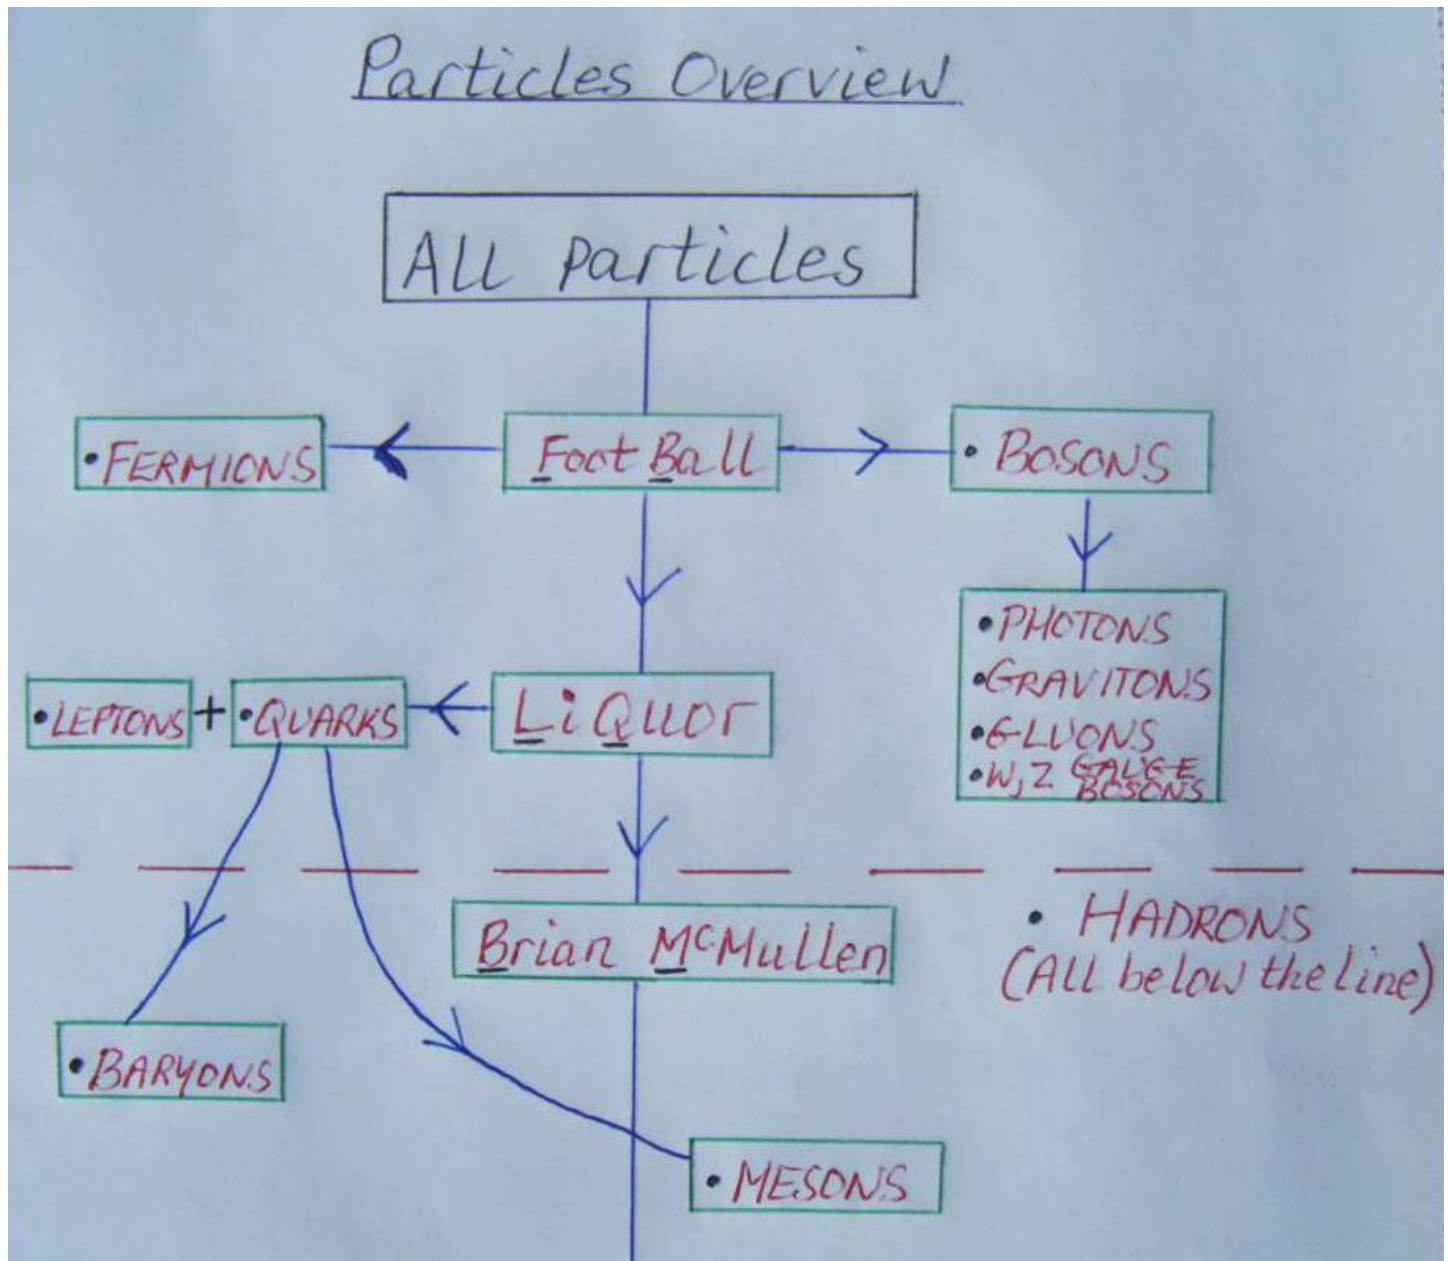 Particles Overview
All particles
• FERMIONS
FootBall
• BOSONS
• PHOTONS
• GRAVITONS
• GLUONS
• W, Z GAUGE
BOSONS
• LEPTONS + • QUARKS
LiQuor
Brian McMullen
• HADRONS
(All below the line)
• BARYONS
• MESONS